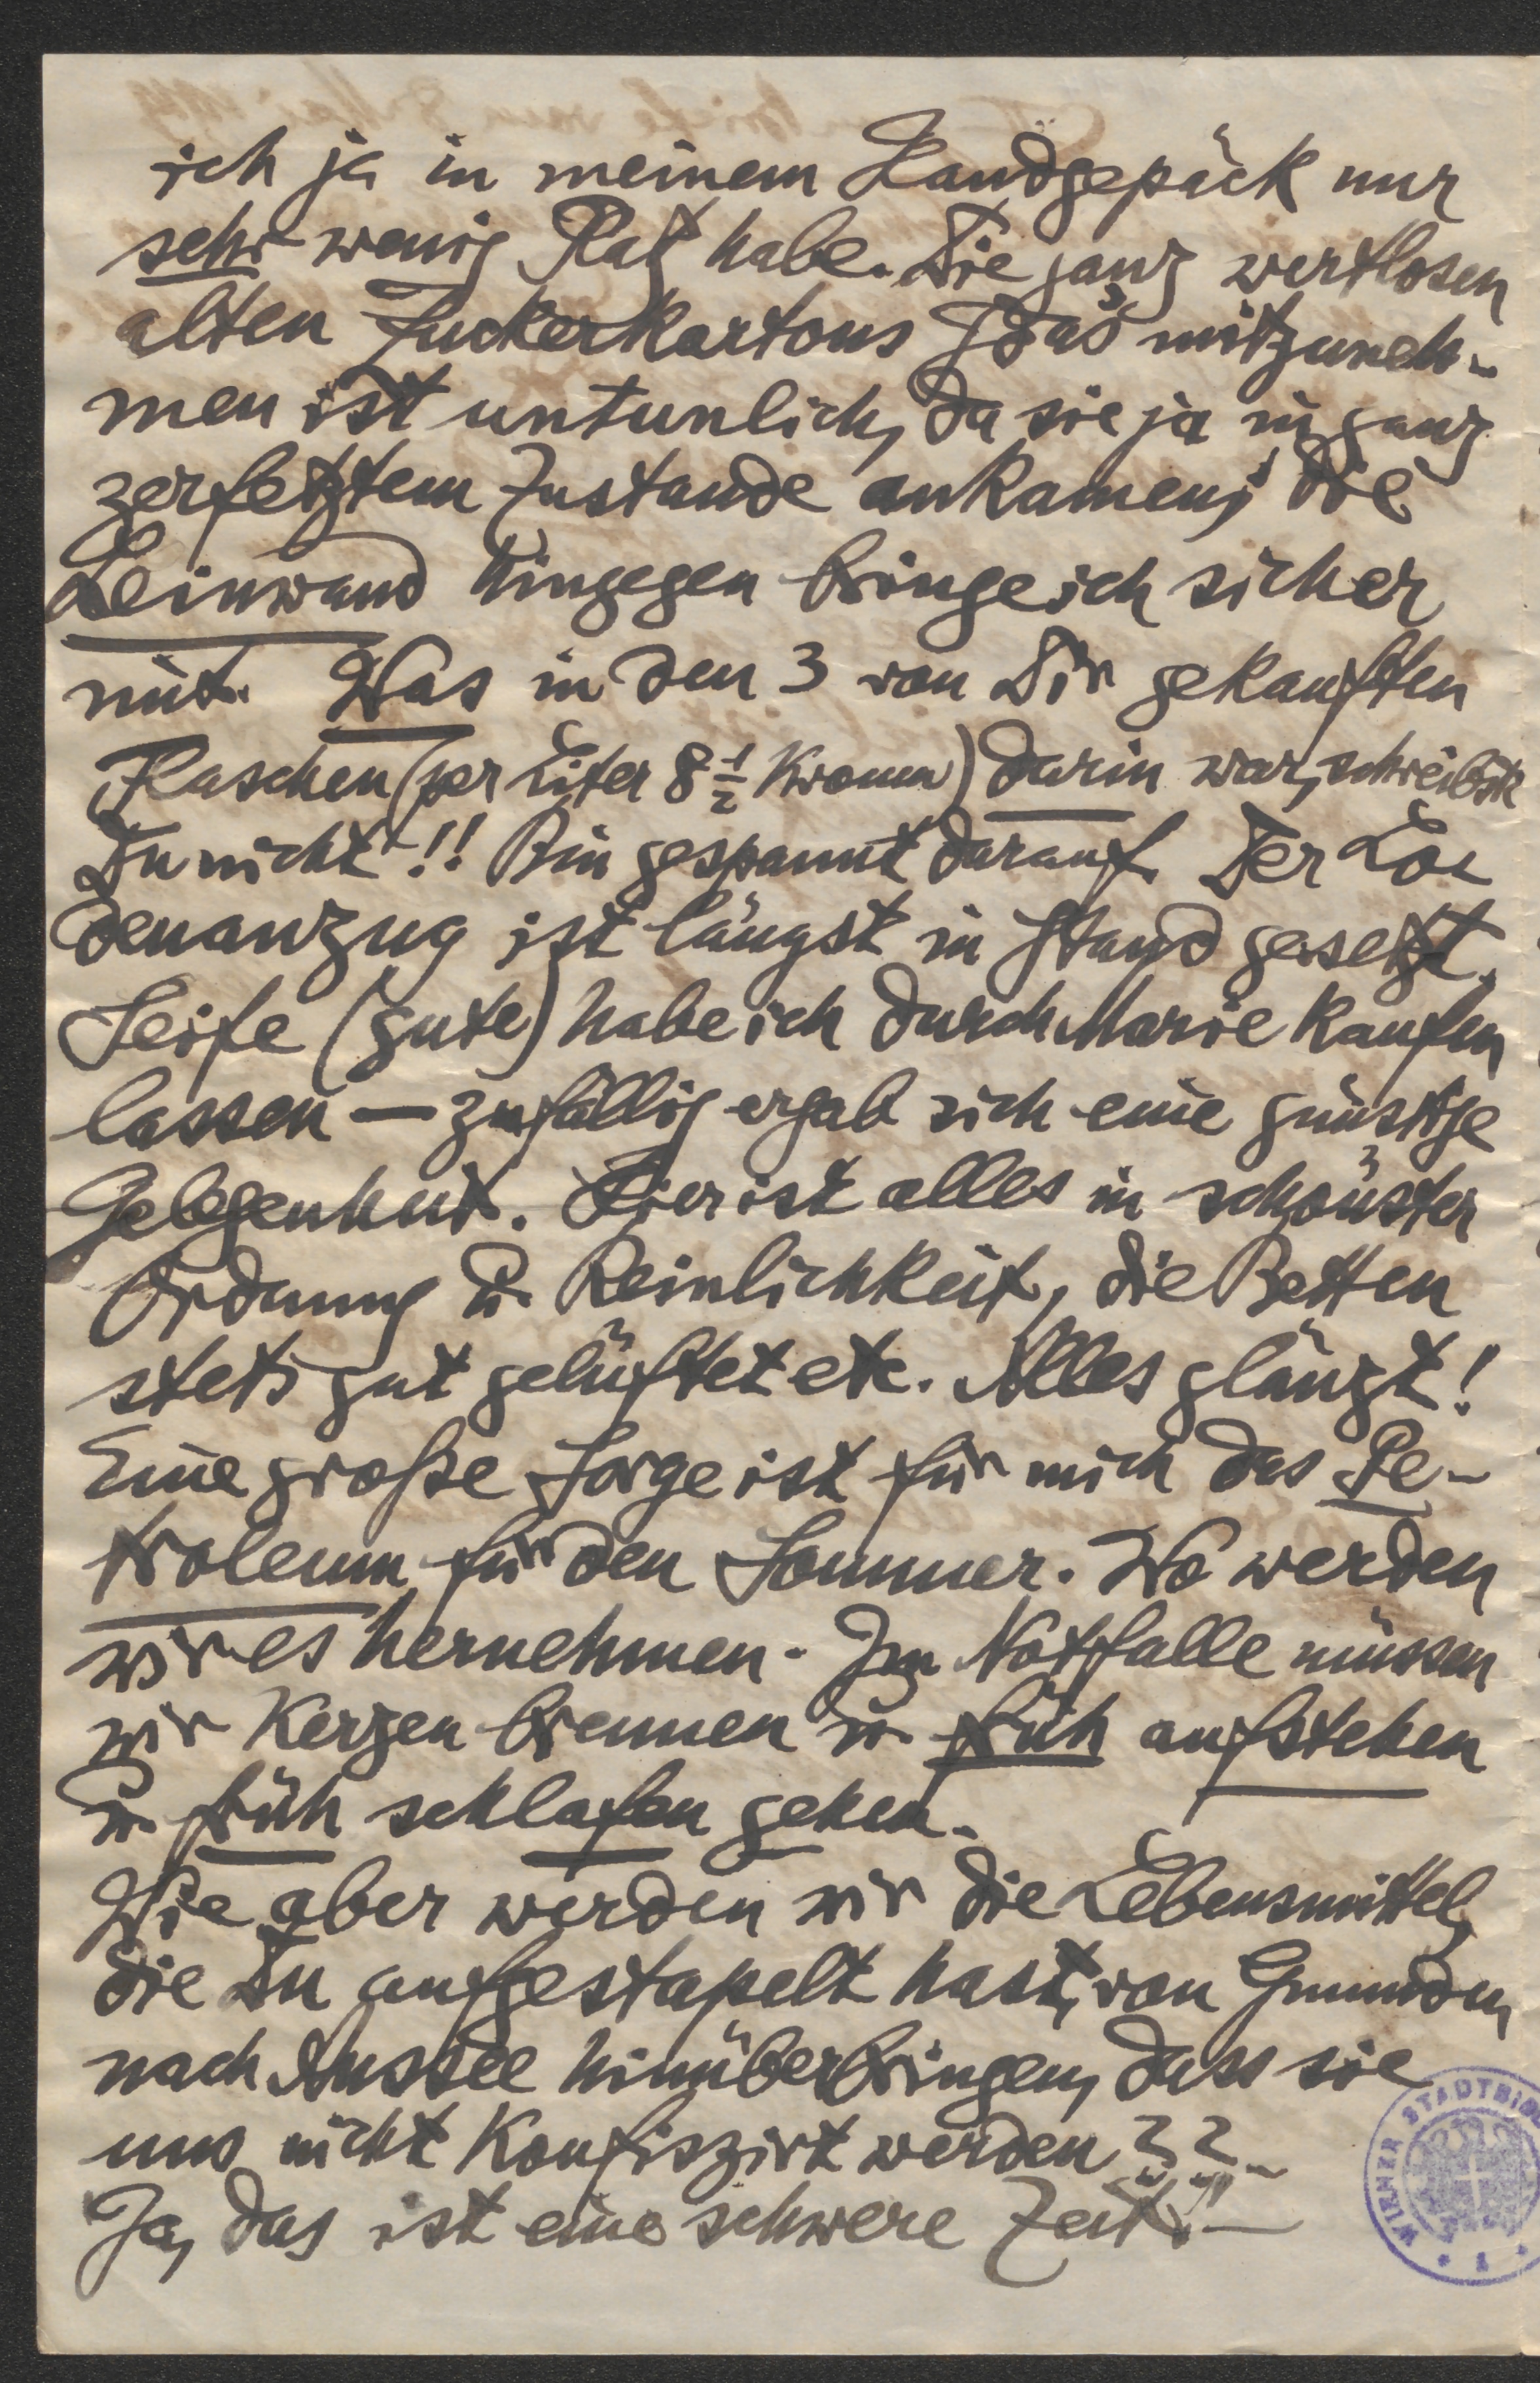 ich ja in meinem Handgepäck nur
sehr wenig Platz habe. Die ganz wertlosen
alten Zuckerkartons mitzuneh-
men ist untunlich, da sie ja in ganz
zerfetztem Zustande ankamen; die
Leinwand hingegen bringe ich sicher
mit. Was in den 3 von Dir gekauften
Flaschen (per Liter 8 1/2 Kronen) darin war, schreibst
Du nicht!! Bin gespannt darauf. Der Lo-
denanzug ist längst in Stand gesetzt.
Seife (gute) habe ich durch Marie kaufen
lassen — zufällig ergab sich eine günstige
Gelegenheit. Hier ist alles in schönster
Ordnung u. Reinlichkeit, die Betten
stets gut gelüftet etc. Alles glänzt!
Eine große Sorge ist für mich das Pe-
troleum für den Sommer. Wo werden
wir es hernehmen. Im Notfalle müssen
wir Kerzen brennen u. früh aufstehen
u. früh schlafen gehen.
Wie aber werden wir die Lebensmittel,
die Du aufgestapelt hast, von Gmunden
nach Aussee hinüberbringen, dass sie
uns nicht konfiszirt werden??—
Ja, das ist eine schwere Zeit!!—
WIENER STADTBI